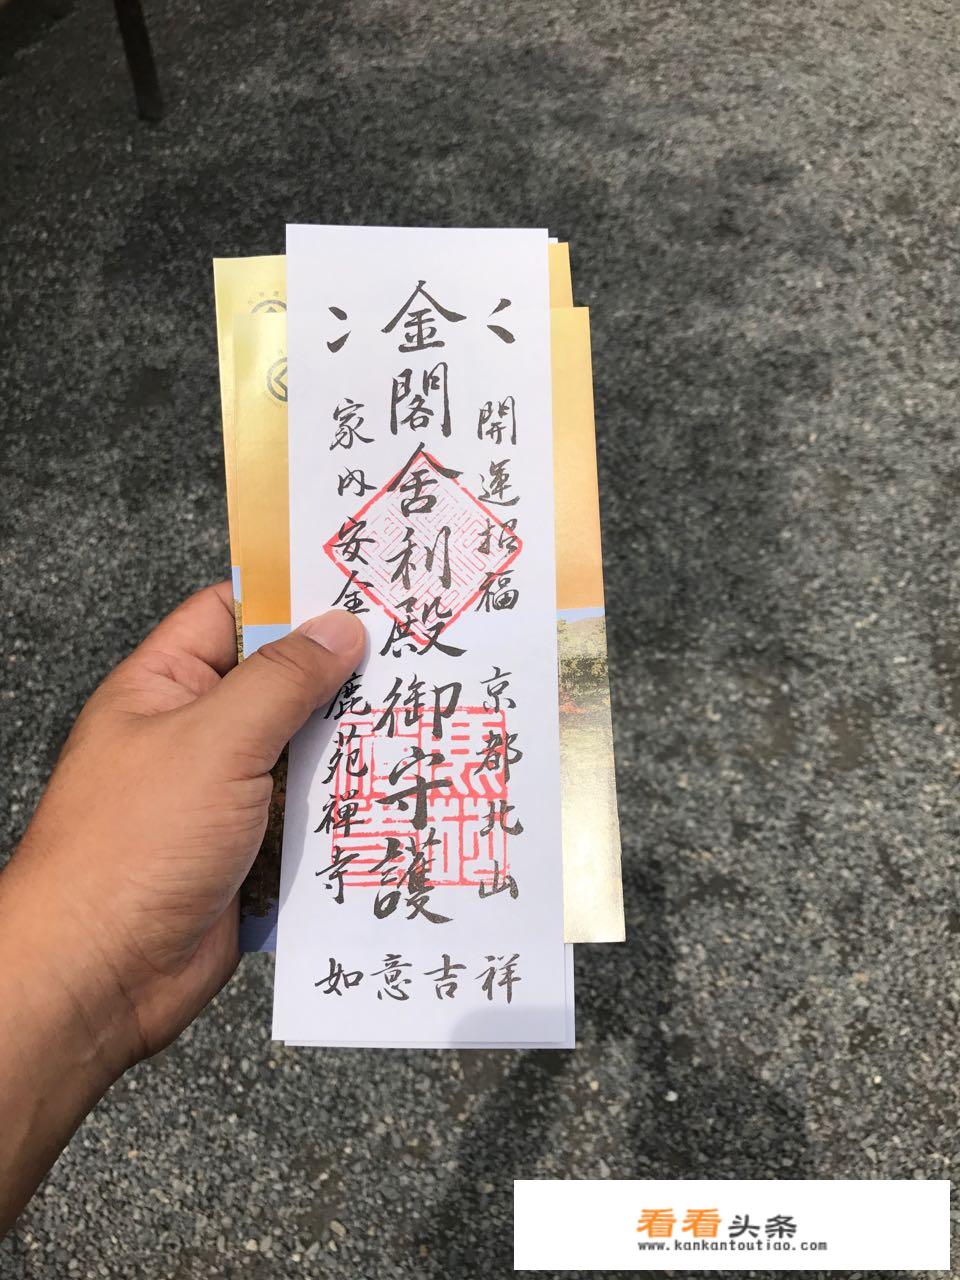 開運招福 京都北山
金閣舍利殿御守護
家内安全 鹿苑禅寺
如意吉祥
看看头条
www.kankantoutiao.com